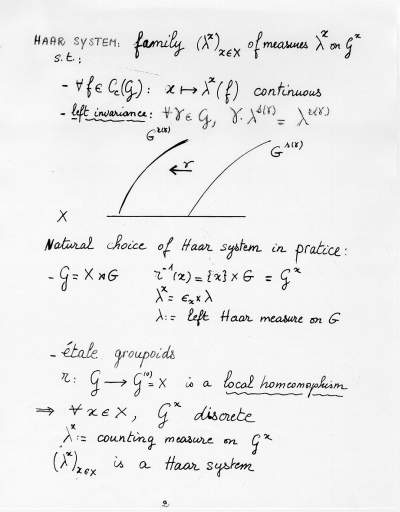 HAAR SYSTEM: family (λˣ)ₓ∈X of measures λˣ on Gˣ
s.t.:
- ∀f ∈ Cc(G): x ↦ λˣ(f) continuous
- left invariance: ∀γ ∈ G, γ·λ^{s(γ)} = λ^{r(γ)}
G^{r(γ)} γ G^{s(γ)}
X
Natural choice of Haar system in pratice:
- G = X ⋊ G r⁻¹(x) = {x} × G = Gˣ
λˣ = εₓ × λ
λ := left Haar measure on G
- étale groupoids
r: G → G⁽⁰⁾ = X is a local homeomorphism
⇒ ∀ x ∈ X, Gˣ discrete
λˣ := counting measure on Gˣ
(λˣ)ₓ∈X is a Haar system